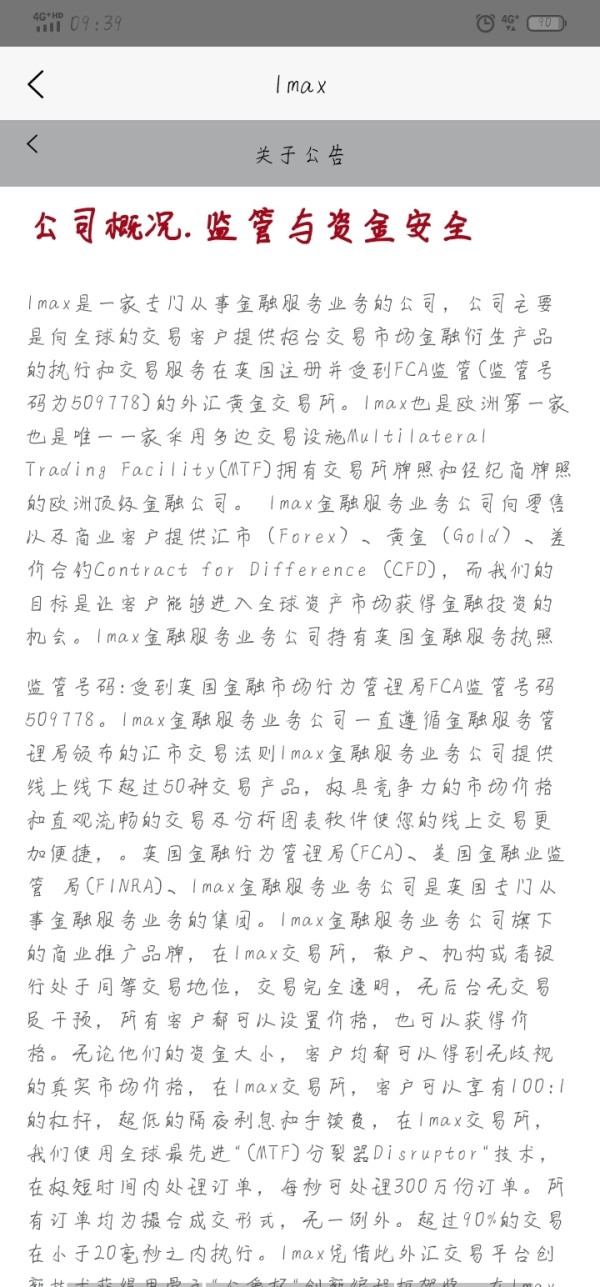 4G+HD 09:39 4G+ 90
lmax
关于公告
公司概况.监管与资金安全
lmax是一家专门从事金融服务业务的公司，公司主要
是向全球的交易客户提供柜台交易市场金融衍生产品
的执行和交易服务在英国注册并受到FCA监管(监管号
码为509778)的外汇黄金交易所。lmax也是欧洲第一家
也是唯一一家采用多边交易设施Multilateral
Trading Facility(MTF)拥有交易所牌照和经纪商牌照
的欧洲顶级金融公司。 lmax金融服务业务公司向零售
以及商业客户提供汇市（Forex）、黄金（Gold）、差
价合约Contract for Difference（CFD)，而我们的
目标是让客户能够进入全球资产市场获得金融投资的
机会。lmax金融服务业务公司持有英国金融服务执照
监管号码:受到英国金融市场行为管理局FCA监管号码
509778。lmax金融服务业务公司一直遵循金融服务管
理局颁布的汇市交易法则lmax金融服务业务公司提供
线上线下超过50种交易产品，极具竞争力的市场价格
和直观流畅的交易及分析图表软件使您的线上交易更
加便捷，。英国金融行为管理局(FCA)、美国金融业监
管 局(FINRA)、lmax金融服务业务公司是英国专门从
事金融服务业务的集团。lmax金融服务业务公司旗下
的商业推广品牌，在lmax交易所，散户、机构或者银
行处于同等交易地位，交易完全透明，无后台无交易
员干预，所有客户都可以设置价格，也可以获得价
格。无论他们的资金大小，客户均都可以得到无歧视
的真实市场价格，在lmax交易所，客户可以享有100:1
的杠杆，超低的隔夜利息和手续费，在lmax交易所，
我们使用全球最先进“(MTF)分裂器Disruptor“技术，
在极短时间内处理订单，每秒可处理300万份订单。所
有订单均为撮合成交形式，无一例外。超过90%的交易
在小于20毫秒之内执行。lmax凭借此外汇交易平台创